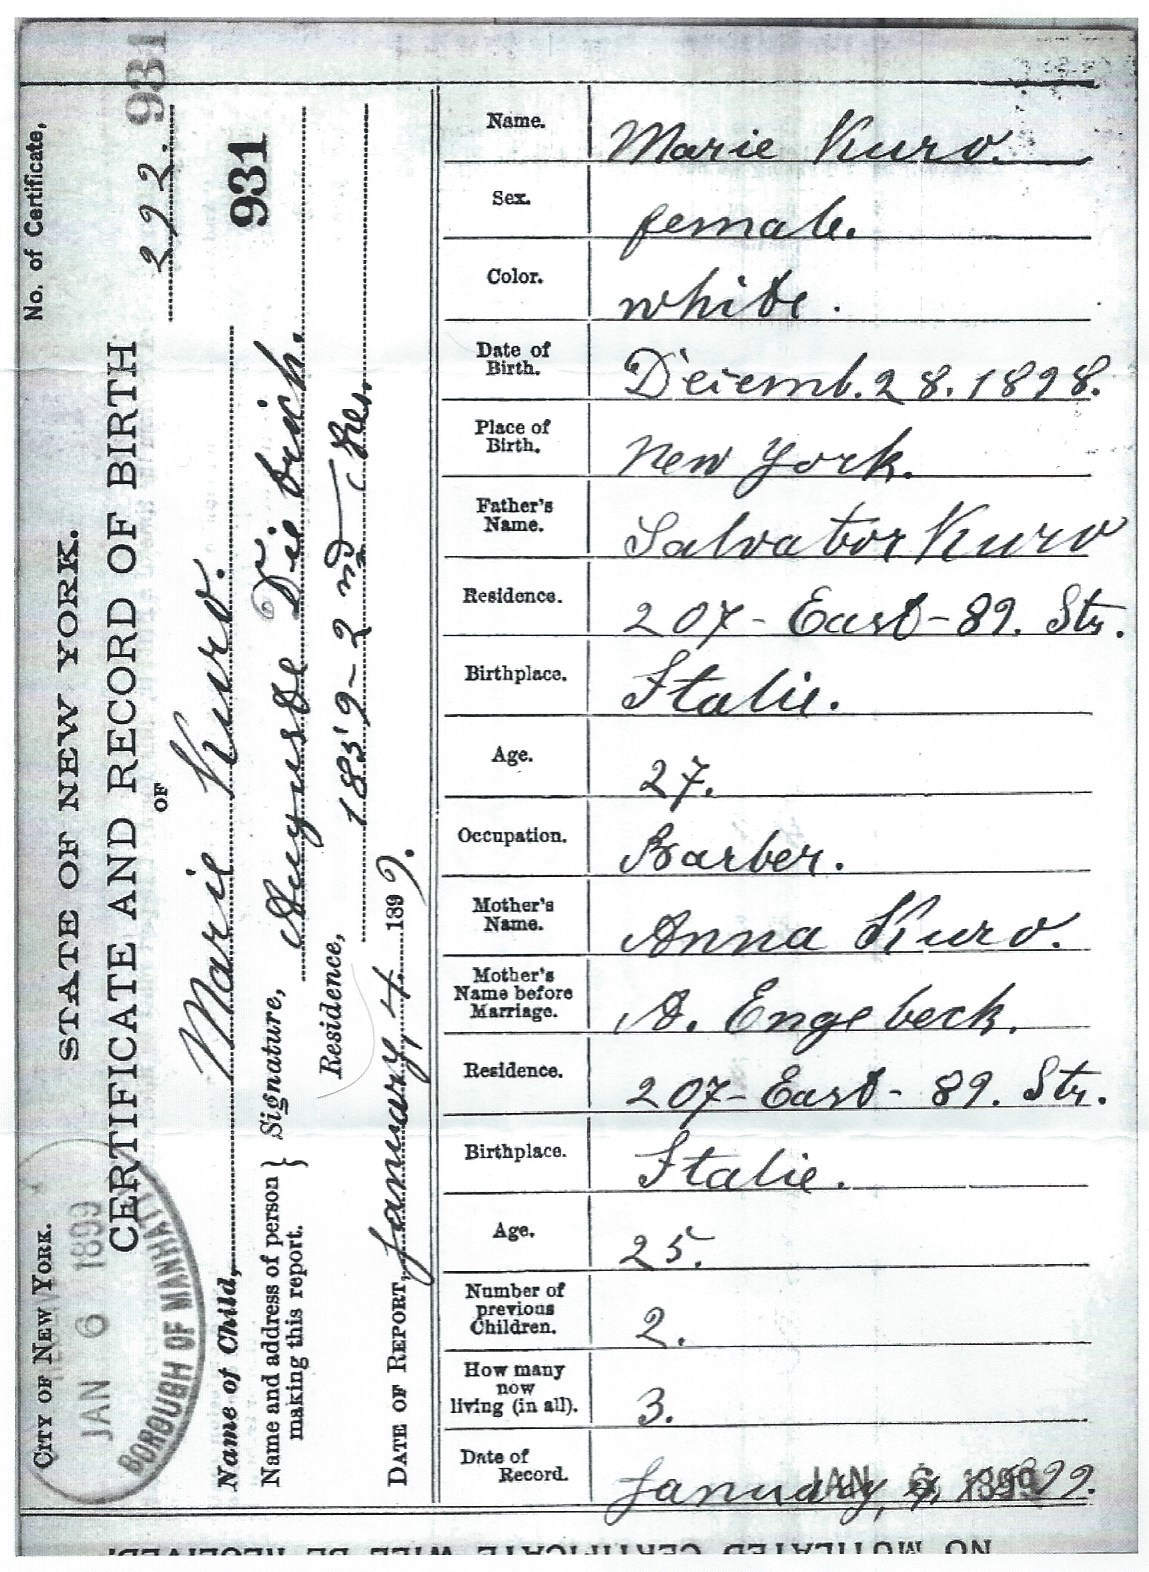 CITY OF NEW YORK.
STATE OF NEW YORK.
No. of Certificate,
CERTIFICATE AND RECORD OF BIRTH
292.
931
OF
Name of Child, Marie Kuro.
931
Name and address of person making this report. } Signature, Auguste Dietrich.
Residence, 1859-2nd
DATE OF REPORT, January 4. 1899.
JAN 6 1899
BOROUGH OF MANHATT
Name. Marie Kuro.
Sex. female.
Color. white.
Date of Birth. Decemb. 28. 1898.
Place of Birth. New York.
Father's Name. Salvator Kuro
Residence. 207-East-89. Str.
Birthplace. Italie.
Age. 27.
Occupation. Barber.
Mother's Name. Anna Kuro.
Mother's Name before Marriage. A. Engebeck.
Residence. 207-East-89. Str.
Birthplace. Italie.
Age. 25.
Number of previous Children. 2.
How many now living (in all). 3.
Date of Record. January, 1899.
JAN 6 1899
NO MUTILATED CERTIFICATE WILL BE RECEIVED!